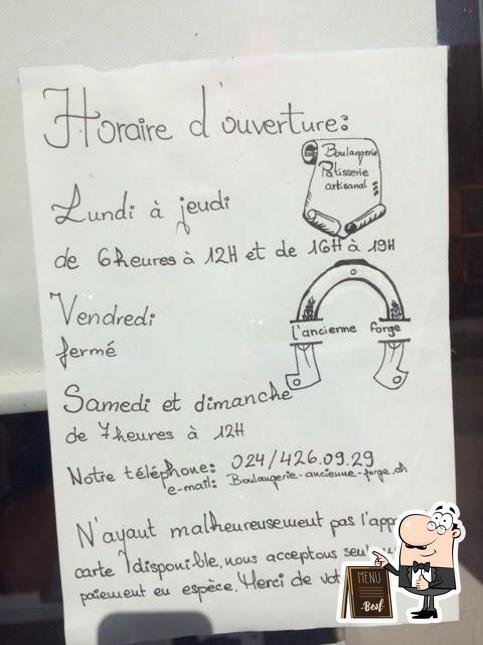 Horaire d'ouverture:
Boulangerie
Pâtisserie
artisanal
Lundi à jeudi
de 6heures à 12H et de 16H à 19H
Vendredi
fermé
l'ancienne forge
Samedi et dimanche
de 7heures à 12H
Notre téléphone: 024/426.09.29
e-mail: Boulangerie-ancienne-forge.ch
N'ayant malheureusement pas l'app
carte disponible, nous acceptons
paiement en espèce. Merci de vot
MENU
Best